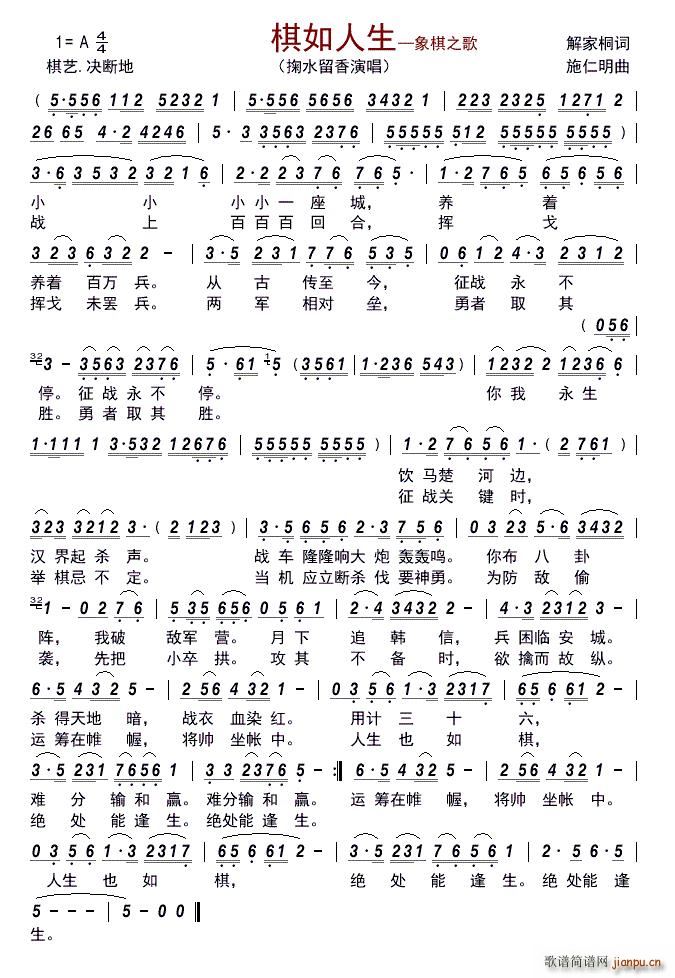 棋如人生—象棋之歌
1= A 4/4
解家桐词
棋艺.决断地
（掬水留香演唱）
施仁明曲
( 5·556 112 5232 1 | 5·556 5656 3432 1 | 223 2325 1271 2 |
26 65 4·2 4246 | 5· 3 3563 2376 | 55555 512 5555 5555 )|
3·6 3532 3216 | 2·2 2376 765· | 1·2765 65656 |
小 小 小小一座城， 养 着
战 上 百百百回合， 挥 戈
3 23 6322 2 - | 3·5 231 776 535 | 0612 423 2312 |
养着 百万 兵。 从 古 传至 今， 征战 永 不
挥戈 未罢 兵。 两 军 相对 垒， 勇者 取 其
( 056
32 3 - 3563 2376 | 5·61 1 5 ( 3561 | 1·236 543 ) | 1232 21236 6 |
停。征战永不 停。 你我 永生
胜。勇者取其 胜。
1·111 13·532 12676 | 55555 5555 ) | 1·2 7656 | 1· ( 2 761 ) |
饮 马楚 河 边，
征 战关 键 时，
323 3212 3· ( 2 123 ) | 3·5656 2·3756 | 03 23 5·6 3432 |
汉 界起 杀 声。 战 车 隆隆响大 炮 轰轰鸣。 你布 八 卦
举 棋忌 不 定。 当 机 应立断杀 伐 要神勇。 为防 敌 偷
32 1 - 02 76 | 5 35 656 02 76 | 2·4 3432 2 - | 4·3 2312 5 - |
阵， 我破 敌军 营。 月下 追 韩 信， 兵 困临 安 城。
袭， 先把 小卒 拱。 攻其 不 备 时， 欲 擒而 故 纵。
6·5 4 32 5 - | 2 56 432 1 - | 03 56 1·3 2317 | 65 6 61 6 - |
杀 得天地 暗， 战衣 血染 红。 用计 三 十 六，
运 筹在帷 幄， 将帅 坐帐 中。 人生 也 如 棋，
3·5 231 7656 1 | 3 3 2376 5 - :‖ 6·5 4 32 5 - | 2·56 432 1 - |
难 分 输 和 赢。难分输和 赢。 运 筹在帷 幄， 将帅 坐帐 中。
绝 处 能 逢生。绝处能逢 生。
03 56 1·3 2317 | 6 - - - | 3·5 231 7656 1 | 2·5 6·5 |
人生 也 如 棋， 绝 处 能 逢 生。绝 处能 逢
5 - - - | 5 - 0 0 ‖
生。
歌谱简谱网
jianpu.cn